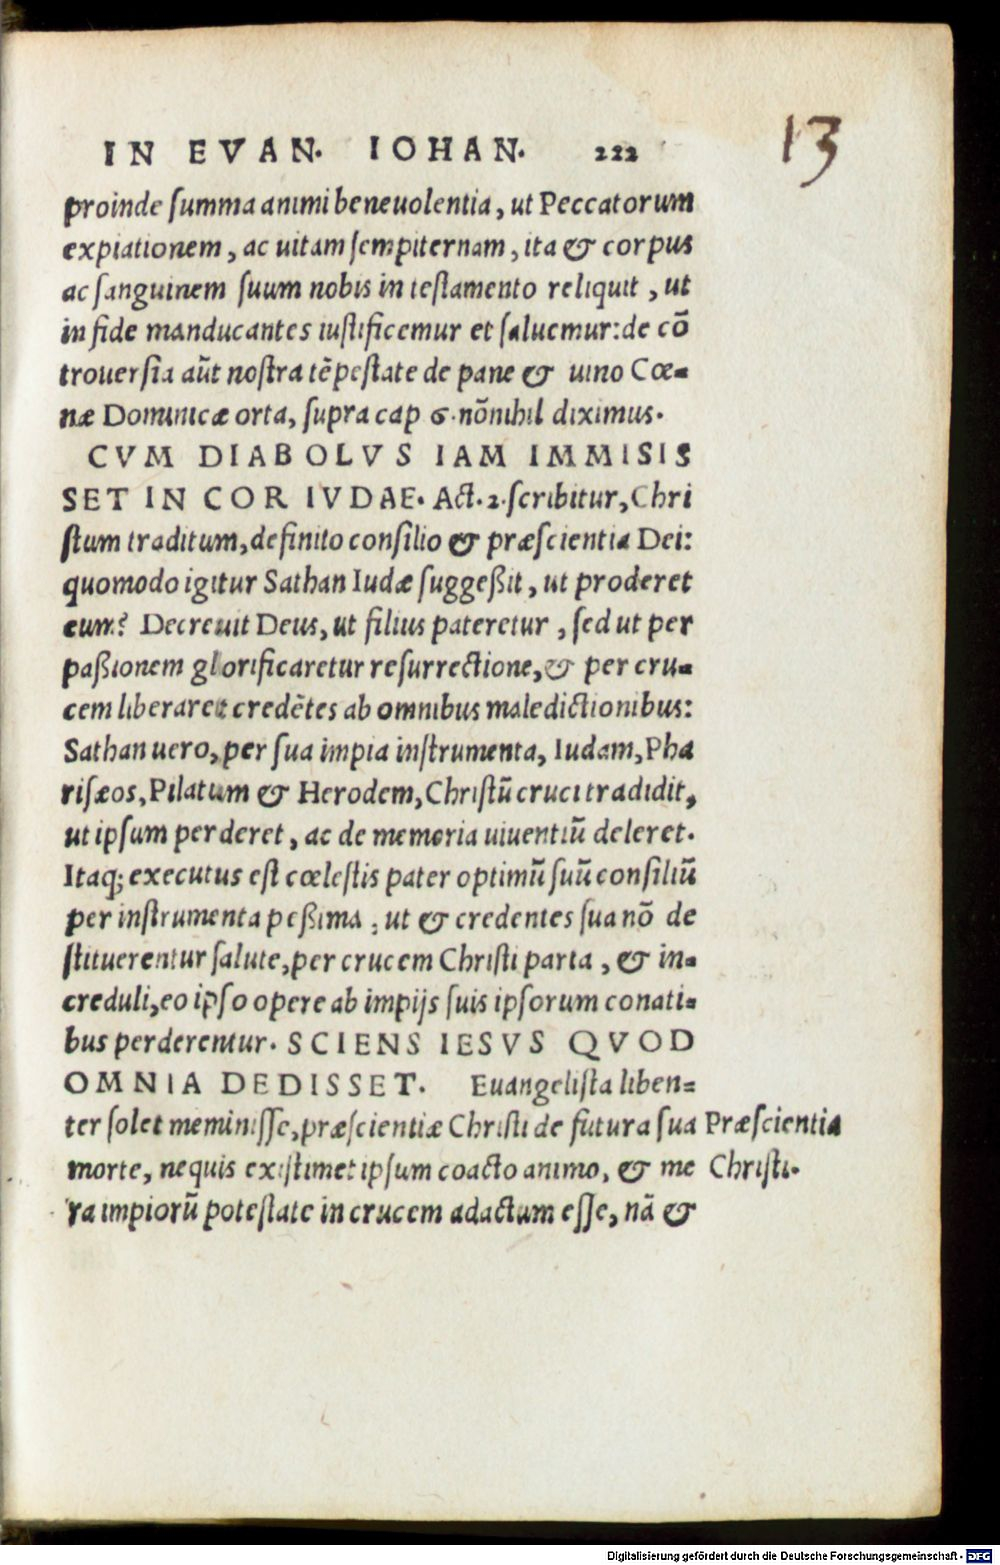 IN EVAN. IOHAN. 222
13
proinde summa animi beneuolentia, ut Peccatorum
expiationem, ac uitam sempiternam, ita & corpus
ac sanguinem suum nobis in testamento reliquit, ut
in fide manducantes iustificemur et saluemur: de cō
trouersia aūt nostra tēpestate de pane & uino Cœ-
næ Dominicæ orta, supra cap 6. nōnihil diximus.
CVM DIABOLVS IAM IMMISIS
SET IN COR IVDAE. Act. 2. scribitur, Chri
stum traditum, definito consilio & præscientia Dei:
quomodo igitur Sathan Iudæ suggeßit, ut proderet
eum? Decreuit Deus, ut filius pateretur, sed ut per
paßionem glorificaretur resurrectione, & per cru-
cem liberaret credētes ab omnibus maledictionibus:
Sathan uero, per sua impia instrumenta, Iudam, Pha
risæos, Pilatum & Herodem, Christū cruci tradidit,
ut ipsum perderet, ac de memoria uiuentiū deleret.
Itaq; executus est cœlestis pater optimū suū consiliū
per instrumenta peßima: ut & credentes sua nō de
stituerentur salute, per crucem Christi parta, & in-
creduli, eo ipso opere ab impijs suis ipsorum conati-
bus perderentur. SCIENS IESVS QVOD
OMNIA DEDISSET. Euangelista liben-
ter solet meminisse, præscientiæ Christi de futura sua Præscientia
morte, nequis existimet ipsum coacto animo, & me Christi.
ra impiorū potestate in crucem adactum esse, nā &
Digitalisierung gefördert durch die Deutsche Forschungsgemeinschaft - DFG